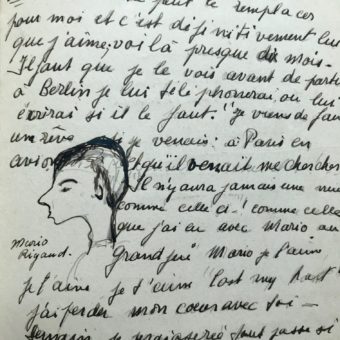 peut le remplacer
pour moi et c'est définitivement lui
que j'aime, voilà presque dix mois.
Il faut que je le vois avant de partir
à Berlin je lui téléphonerai ou lui
écrirai si il le faut. "Je viens de faire
un rêve je venais à Paris en
avion et qu'il venait me chercher
Il n'y aura jamais une
comme celle ci! comme celle
que j'ai eu avec Mario au
Grand Mario je t'aime
je t'aime je t'aime "lost my heart"
j'ai perdu mon cœur avec toi -
tout passe si
Mario
Rigaud.